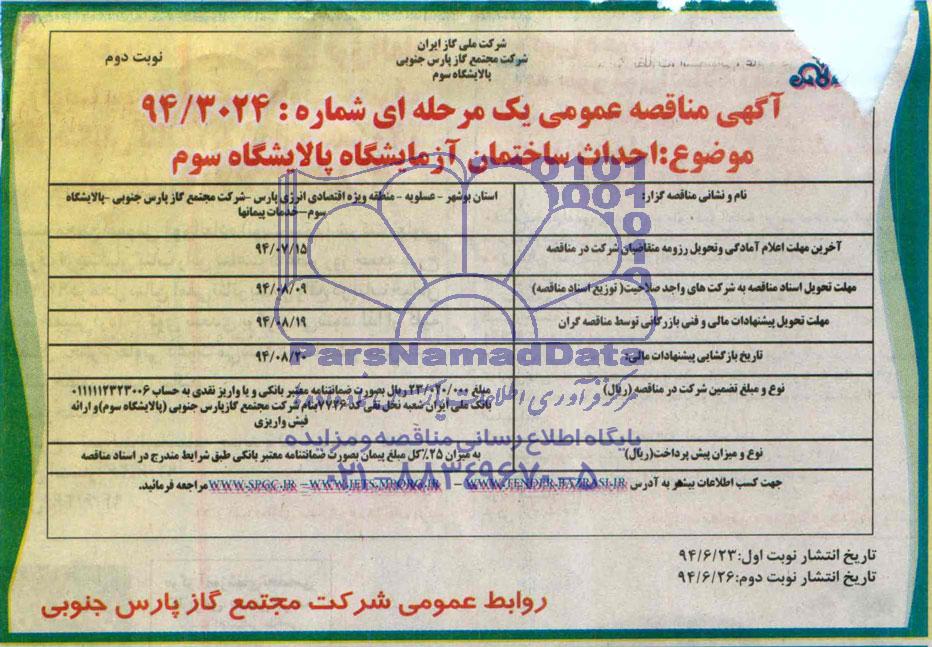 شرکت ملی گاز ایران
شرکت مجتمع گاز پارس جنوبی
پالایشگاه سوم
نوبت دوم
آگهی مناقصه عمومی یک مرحله ای شماره : ۹۴/۳۰۲۴
موضوع:احداث ساختمان آزمایشگاه پالایشگاه سوم
نام و نشانی مناقصه گزار:
استان بوشهر - عسلویه - منطقه ویژه اقتصادی انرژی پارس -شرکت مجتمع گاز پارس جنوبی -پالایشگاه
سوم-خدمات پیمانها
آخرین مهلت اعلام آمادگی وتحویل رزومه متقاضیان شرکت در مناقصه
۹۴/۰۷/۱۵
مهلت تحویل اسناد مناقصه به شرکت های واجد صلاحیت( توزیع اسناد مناقصه)
۹۴/۰۸/۰۹
مهلت تحویل پیشنهادات مالی و فنی بازرگانی توسط مناقصه گران
۹۴/۰۸/۱۹
تاریخ بازگشایی پیشنهادات مالی:
۹۴/۰۸/۲۰
نوع و مبلغ تضمین شرکت در مناقصه (ریال)
مبلغ ریال بصورت ضمانتنامه معتبر بانکی و یا واریز نقدی به حساب ۰۱۱۱۱۱۲۳۲۳۰۰۶
بانک ملی ایران شعبه نخل تقی کد ۷۷۴۶ بنام شرکت مجتمع گازپارس جنوبی (پالایشگاه سوم)و ارائه
فیش واریزی
نوع و میزان پیش پرداخت(ریال)
به میزان ۲۵٪ کل مبلغ پیمان بصورت ضمانتنامه معتبر بانکی طبق شرایط مندرج در اسناد مناقصه
جهت کسب اطلاعات بیشتر به آدرس WWW.TENDER.BAZRASI.IR – WWW.IETS.MPORG.IR – WWW.SPGC.IR مراجعه فرمائید.
ParsNamadData
پایگاه اطلاع رسانی مناقصه و مزایده
۰۲۱-۸۸۳۴۹۶۷۰-۵
تاریخ انتشار نوبت اول:۹۴/۶/۲۳
تاریخ انتشار نوبت دوم:۹۴/۶/۲۶
روابط عمومی شرکت مجتمع گاز پارس جنوبی